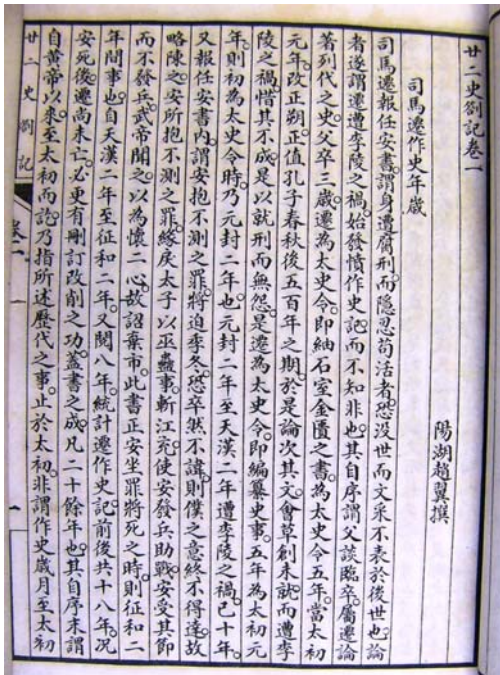 廿二史劄記卷一
陽湖趙翼撰
司馬遷作史年歲
司馬遷報任安書。謂身遭腐刑而隱忍苟活者。恐没世而文采不表於後世也。論
者遂謂遷遭李陵之禍。始發憤作史記。而不知非也。其自序謂父談臨卒。屬遷論
著列代之史。父卒三歲。遷為太史令。即紬石室金匱之書。為太史令五年。當太初
元年。改正朔。正值孔子春秋後五百年之期。於是論次其文。會草創未就。而遭李
陵之禍。惜其不成。是以就刑而無怨。是遷為太史令。即編纂史事。五年為太初元
年。則初為太史令時。乃元封二年也。元封二年至天漢二年遭李陵之禍。已十年。
又報任安書。内謂安抱不測之罪。將迫季冬。恐卒然不諱。則僕之意終不得達。故
略陳之。安所抱不測之罪。緣戾太子以巫蠱事斬江充。使安發兵助戰。安受其節
而不發兵。武帝聞之。以為懷二心。故詔棄市。此書正安坐罪將死之時。則征和二
年間事也。自天漢二年至征和二年。又閱八年。統計遷作史記。前後共十八年。况
安死後。遷尚未亡。必更有刪訂改削之功。蓋書之成。凡二十餘年也。其自序末謂
自黄帝以來。至太初而訖。乃指所述歷代之事。止於太初。非謂作史歲月至太初
廿二史劄記
卷一
一